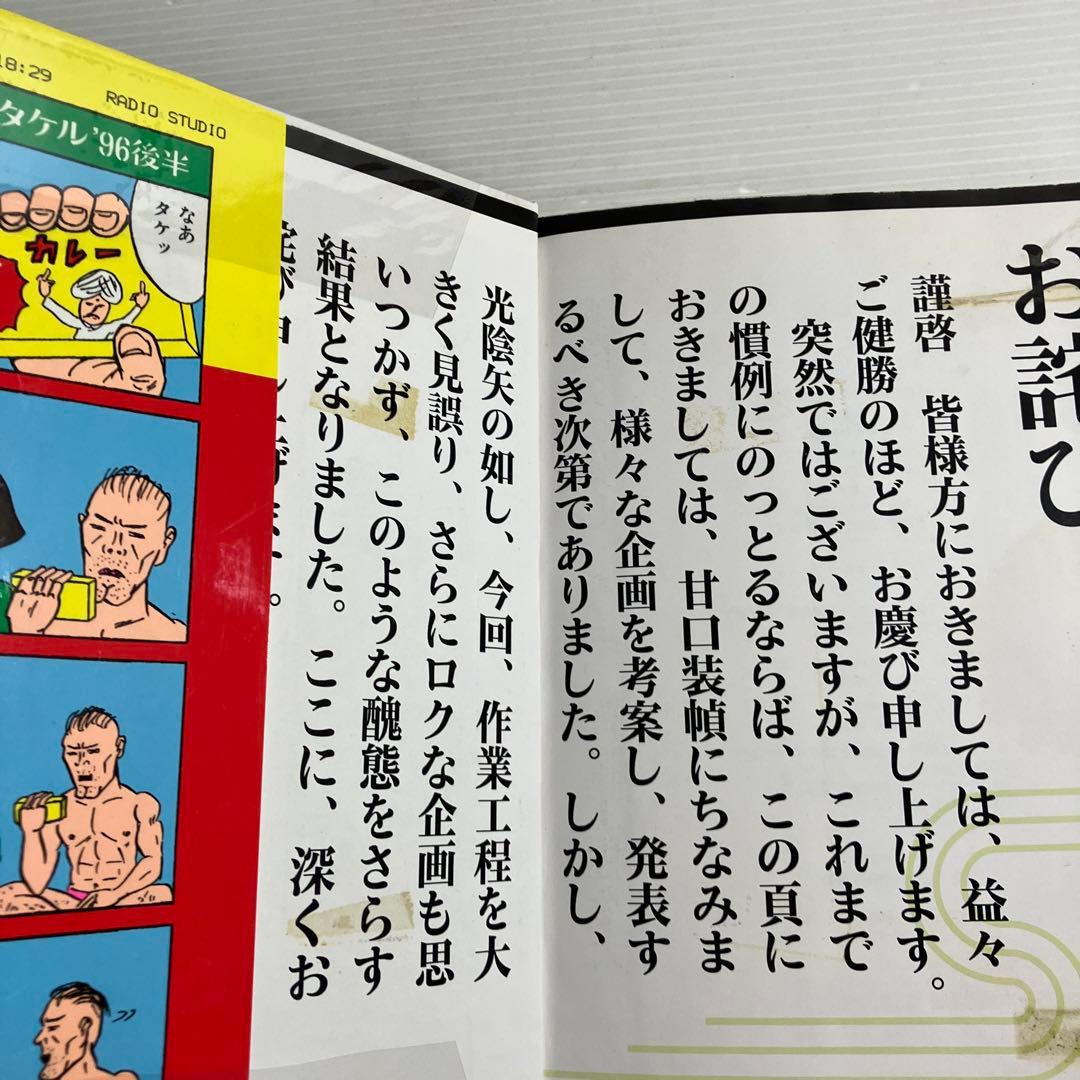 お詫び
謹啓　皆様方におきましては、益々
ご健勝のほど、お慶び申し上げます。
突然ではございますが、これまで
の慣例にのっとるならば、この頁に
おきましては、甘口装幀にちなみま
して、様々な企画を考案し、発表す
るべき次第でありました。しかし、
光陰矢の如し、今回、作業工程を大
きく見誤り、さらにロクな企画も思
いつかず、このような醜態をさらす
結果となりました。ここに、深くお
詫び申し上げます。
18:29
RADIO STUDIO
タケル'96後半
なあ
タケッ
カレー